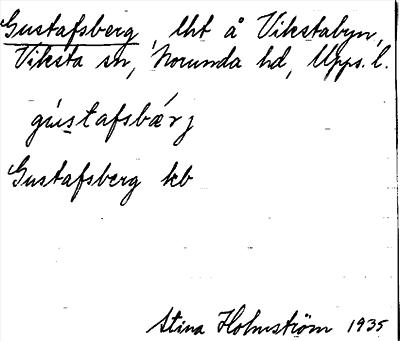 Gustafsberg, lht å Vikstabyn,
Viksta sn, Norunda hd, Upps. l.
gústafsbærj
Gustafsberg kb
Stina Holmström 1935